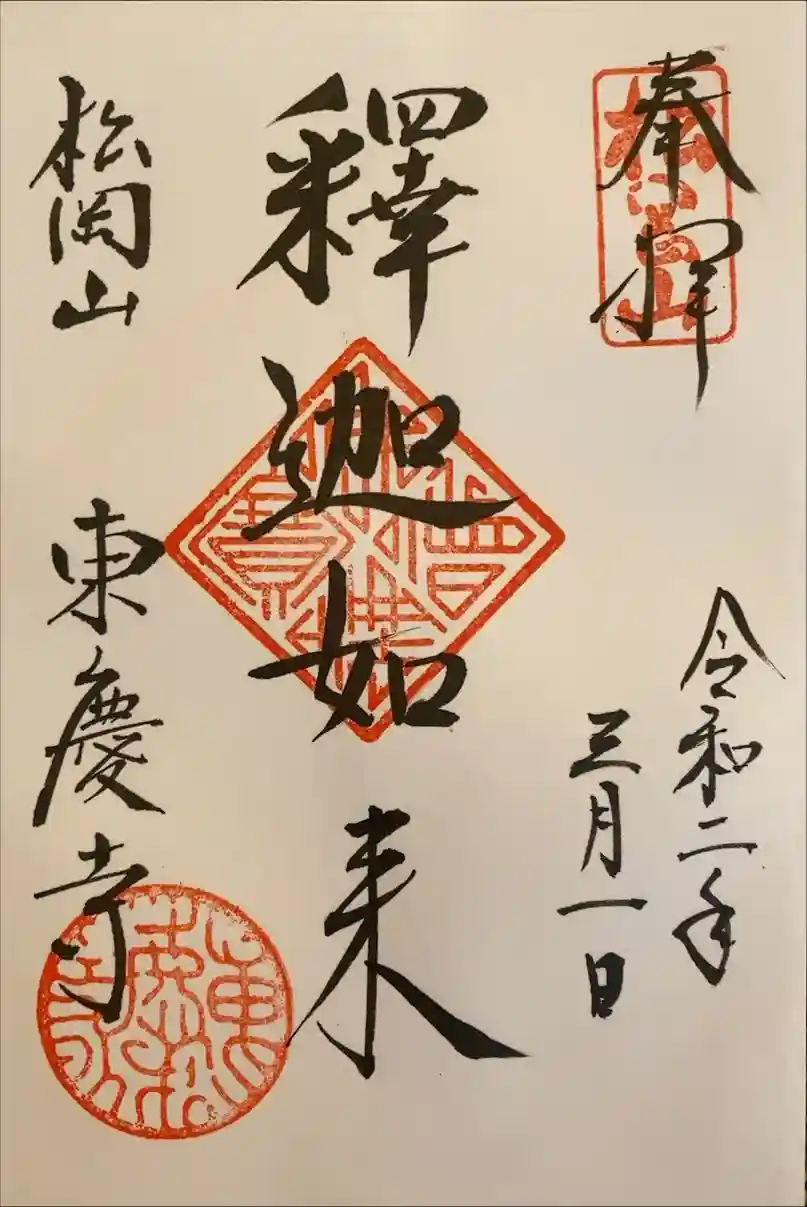 奉拝
令和二年
三月一日
釋迦如来
松岡山
東慶寺
松岡山
東慶寺